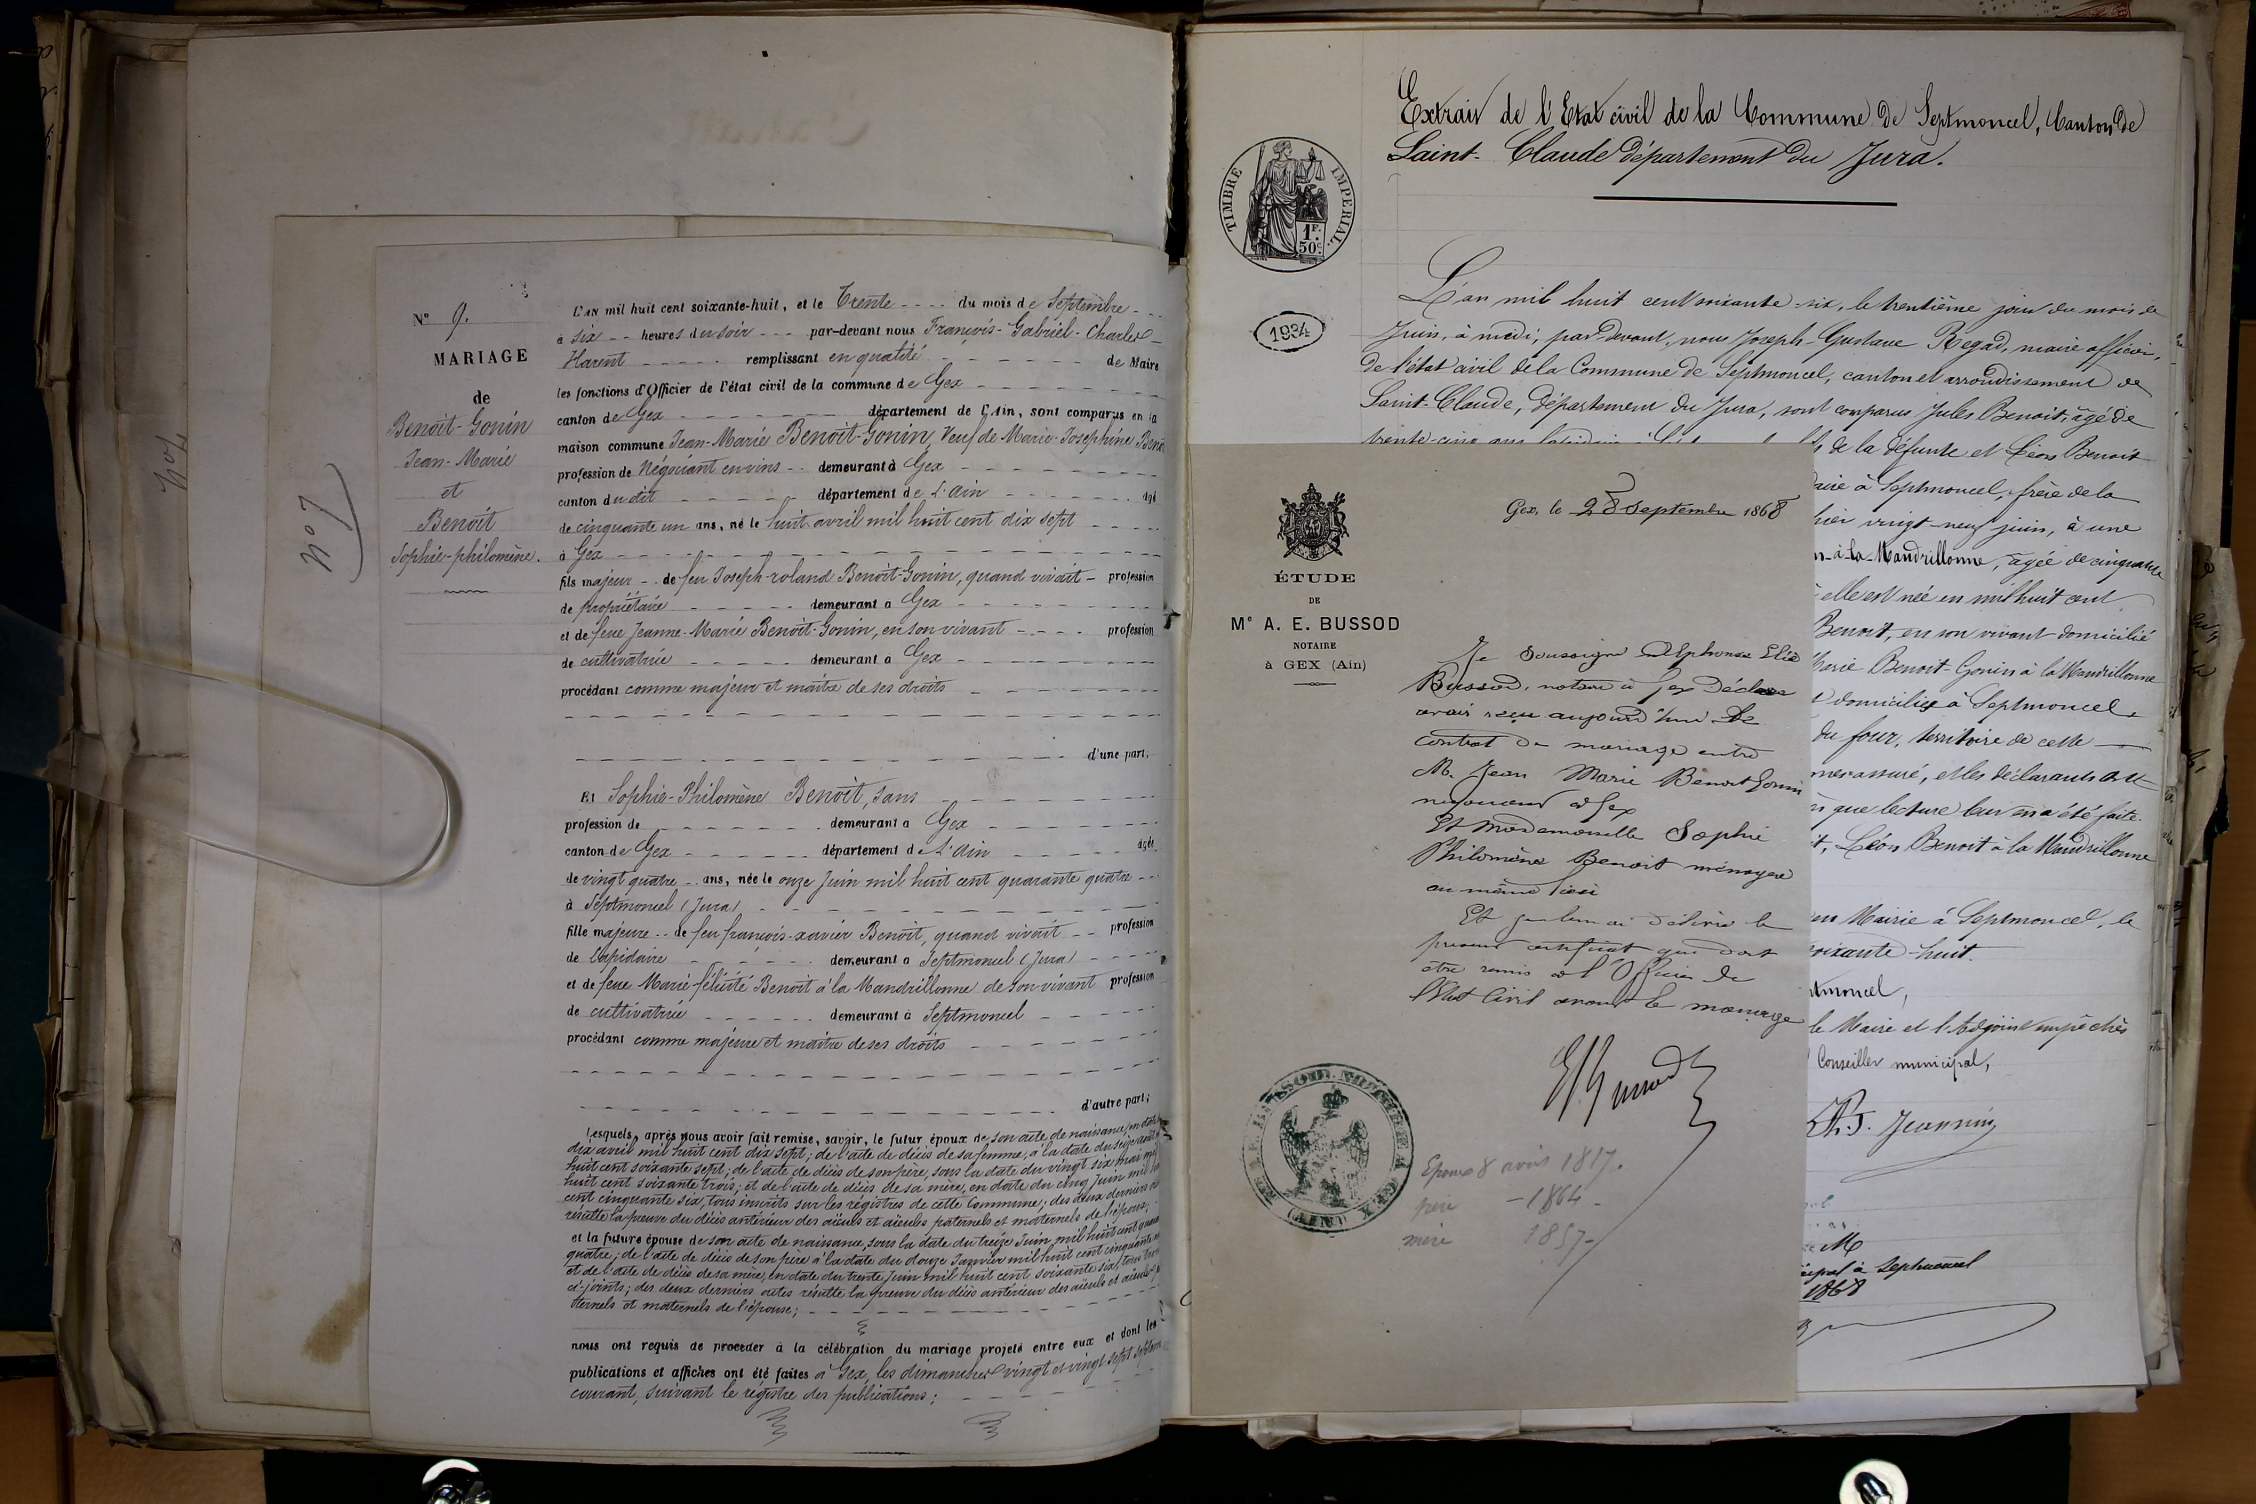 N° 9.
MARIAGE
de
Benoît-Gonin
Jean-Marie
et
Benoît
Sophie-philomène.
n° 7
L'AN mil huit cent soixante-huit, et le Trente du mois de Septembre
à six heures du soir par-devant nous François-Gabriel-Charles
Harent remplissant en qualité de Maire
les fonctions d'Officier de l'état civil de la commune de Gex
canton de Gex département de l'Ain, sont comparus en la
maison commune Jean-Marie Benoît-Gonin, Veuf de Marie-Joséphine Benoî
profession de Négociant en vins demeurant à Gex
canton du dit département de L'Ain âgé
de cinquante un ans, né le huit avril mil huit cent dix sept
à Gex
fils majeur de feu Joseph-roland Benoît-Gonin, quand vivait profession
de propriétaire demeurant à Gex
et de feue Jeanne-Marie Benoît-Gonin, en son vivant profession
de cultivatrice demeurant à Gex
procédant comme majeur et maître de ses droits
d'une part.
Et Sophie-Philomène Benoît, sans
profession de demeurant à Gex
canton de Gex département de L'Ain âgée
de vingt quatre ans, née le onze Juin mil huit cent quarante quatre
à Septmoncel (Jura)
fille majeure de feu françois-xavier Benoît, quand vivait profession
de lapidaire demeurant à Septmoncel (Jura)
et de feue Marie félicité Benoît à la Mandrillonne de son vivant profession
de cultivatrice demeurant à Septmoncel
procédant comme majeure et maître de ses droits
d'autre part;
Lesquels, après nous avoir fait remise, savoir, le futur époux de son acte de naissance, en date
dix avril mil huit cent dix sept; de l'acte de décès de sa femme, à la date du seize août
huit cent soixante sept; de l'acte de décès de son père, sous la date du vingt six mai mil
huit cent soixante trois; et de l'acte de décès de sa mère, en date du cinq Juin mil huit
cent cinquante six, tous inscrits sur les régistres de cette Commune; des deux derniers
résulte la preuve du décès antérieur des aïeuls et aïeules paternels et maternels de l'époux;
et la future épouse de son acte de naissance, sous la date du treize Juin mil huit cent quarante
quatre; de l'acte de décès de son père à la date du douze Janvier mil huit cent cinquante
et de l'acte de décès de sa mère, en date du trente Juin mil huit cent soixante six, tous trois
ci-joints; des deux derniers actes résulte la preuve du décès antérieur des aïeuls et aïeules
ternels et maternels de l'épouse;
nous ont requis de procéder à la célébration du mariage projeté entre eux et dont les
publications et affiches ont été faites à Gex, les dimanches vingt et vingt sept septembre
courant, suivant le régistre des publications;
Extrait de l'Etat civil de la Commune de Septmoncel, Canton de
Saint-Claude département du Jura.
TIMBRE IMPÉRIAL.
1F.
50c.
1934
L'an mil huit cent soixante-six, le trentième jour du mois de
Juin, à midi, par-devant, nous Joseph-Gustave Regad, maire officier,
de l'état civil de la Commune de Septmoncel, canton et arrondissement de
Saint-Claude, département du Jura, sont comparus Jules Benoit, âgé de
trente-cinq ans
de la défunte et Léon Benoit
à Septmoncel, frère de la
hier vingt-neuf juin, à une
à-la-Mandrillonne, âgée de cinquante
elle est née en mil huit cent
Benoit, en son vivant domicilié
Marie Benoit-Gonin à la Mandrillonne
domiciliée à Septmoncel,
du four, territoire de cette
assuré, et les déclarants ont
que lecture leur en a été faite.
Léon Benoit à la Mandrillonne
en Mairie à Septmoncel, le
soixante-huit.
tmoncel,
le Maire et l'Adjoint empêchés
Conseiller municipal,
Jeannin
à Septmoncel
1868
Gex, le 28 septembre 1868
ÉTUDE
DE
Me A. E. BUSSOD
NOTAIRE
à GEX (Ain)
Je soussigné Alphonse Elie
Bussod, notaire à Gex Déclare
avoir reçu aujourd'hui le
contrat de mariage entre
M. Jean Marie Benoit Gonin
négociant à Gex
Et Mademoiselle Sophie
Philomène Benoit ménagère
au même lieu
Et je lui ai délivré le
présent certificat qui doit
être remis à l'Officier de
l'Etat Civil avant le mariage
Epoux 8 avril 1817.
père - 1864 -
mère 1857 -